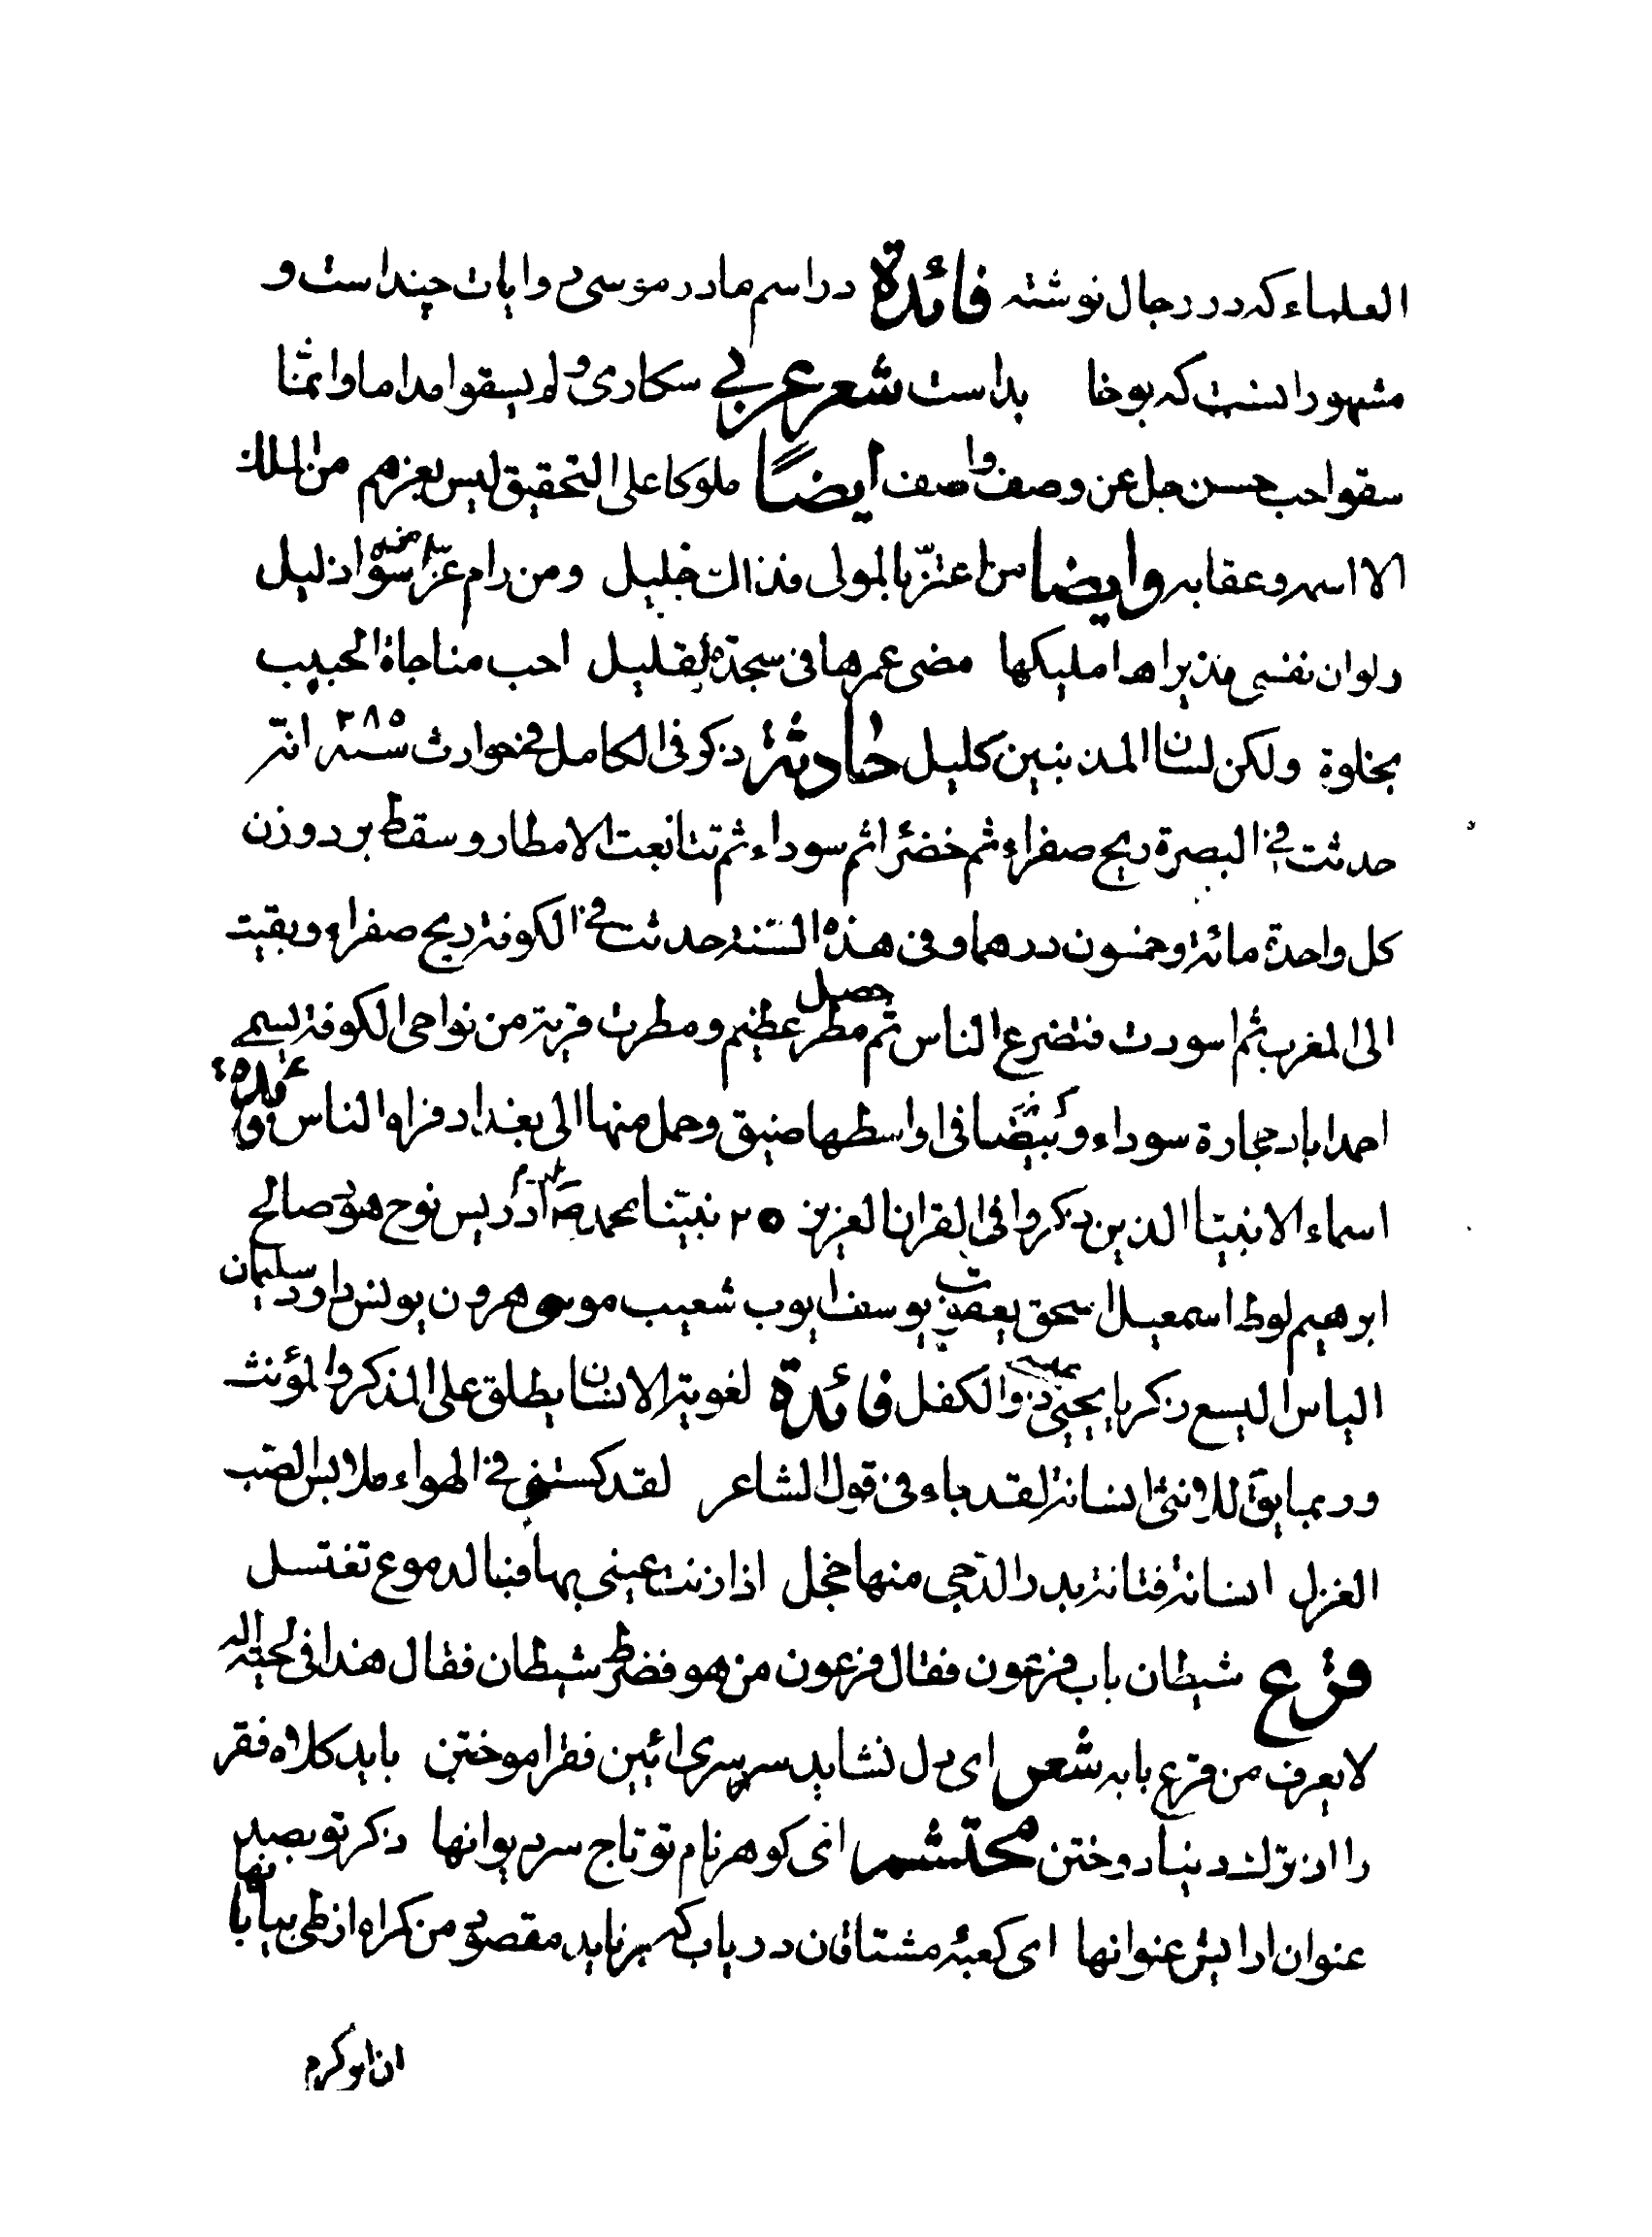 العلماء که در رجال نوشته فائدة در اسم مادر موسی روایات چند است و
مشهور اینست که یوخابد است شعر عربي سکاری و لم یسقوا مداما وانما
سقوا حب حسن جل عن وصف واصف ایضاً ملوکا علی التحقیق لیس بغیرهم من الملک
الا اسمه وعقابه وایضا من اعتز بالمولی فذاک جلیل ومن رام عزا من سواه ذلیل
ولو ان نفسی مذ براها ملیکها مضی عمرها فی سجدة لقلیل احب مناجاة الحبیب
بخلوة ولکن لسان المذنبین کلیل حادثة ذکر فی الکامل فی حوادث سنة ٢٨٥ انه
حدثت فی البصرة ریح صفراء ثم خضرا ثم سوداء ثم تتابعت الامطار وسقط برد وزن
کل واحدة مائة وخمسون درهما وفی هذه السنة حدثت فی الکوفة ریح صفراء وبقیت
الی المغرب ثم اسودت فتضرع الناس ثم حصل مطر عظیم ومطرت قریة من نواحی الکوفة یسمی
احمداباد حجارة سوداء وبیضا فی اواسطها ضیق وحمل منها الی بغداد فراه الناس فائدة
اسماء الانبیا الذین ذکروا فی القران العزیز ٢٥ نبینا محمد ص ادم ادریس نوح هود صالح
ابرهیم لوط اسمعیل اسحق یعقوب یوسف ایوب شعیب موسی هرون یونس داود سلیمان
الیاس الیسع زکریا یحیی عیسی ذو الکفل فائدة لغویة الانسان یطلق علی المذکر والمؤنث
وربما یق للانثی انسانة لقد جاء فی قول الشاعر لقد کستنی فی الهواء ملابس الصب
الغزل انسانة فتانة بدر الدجی منها خجل اذا زنت عینی بها فبالدموع تغتسل
قرع شیطان باب فرعون فقال فرعون من هو فضرط شیطان فقال هذا فی لحیة اله
لا یعرف من قرع بابه شعر ای دل نشاید سرسری ائین فقر اموختن باید کلاه فقر
را از ترک دنیا دوختن محتشم ای کوهر نام تو تاج سر دیوانها ذکر تو بصد
عنوان ارایش عنوانها ای کعبه مشتاقان دریاب که برناید مقصود من کمراه از طی بیابانها
ان ابو کرم